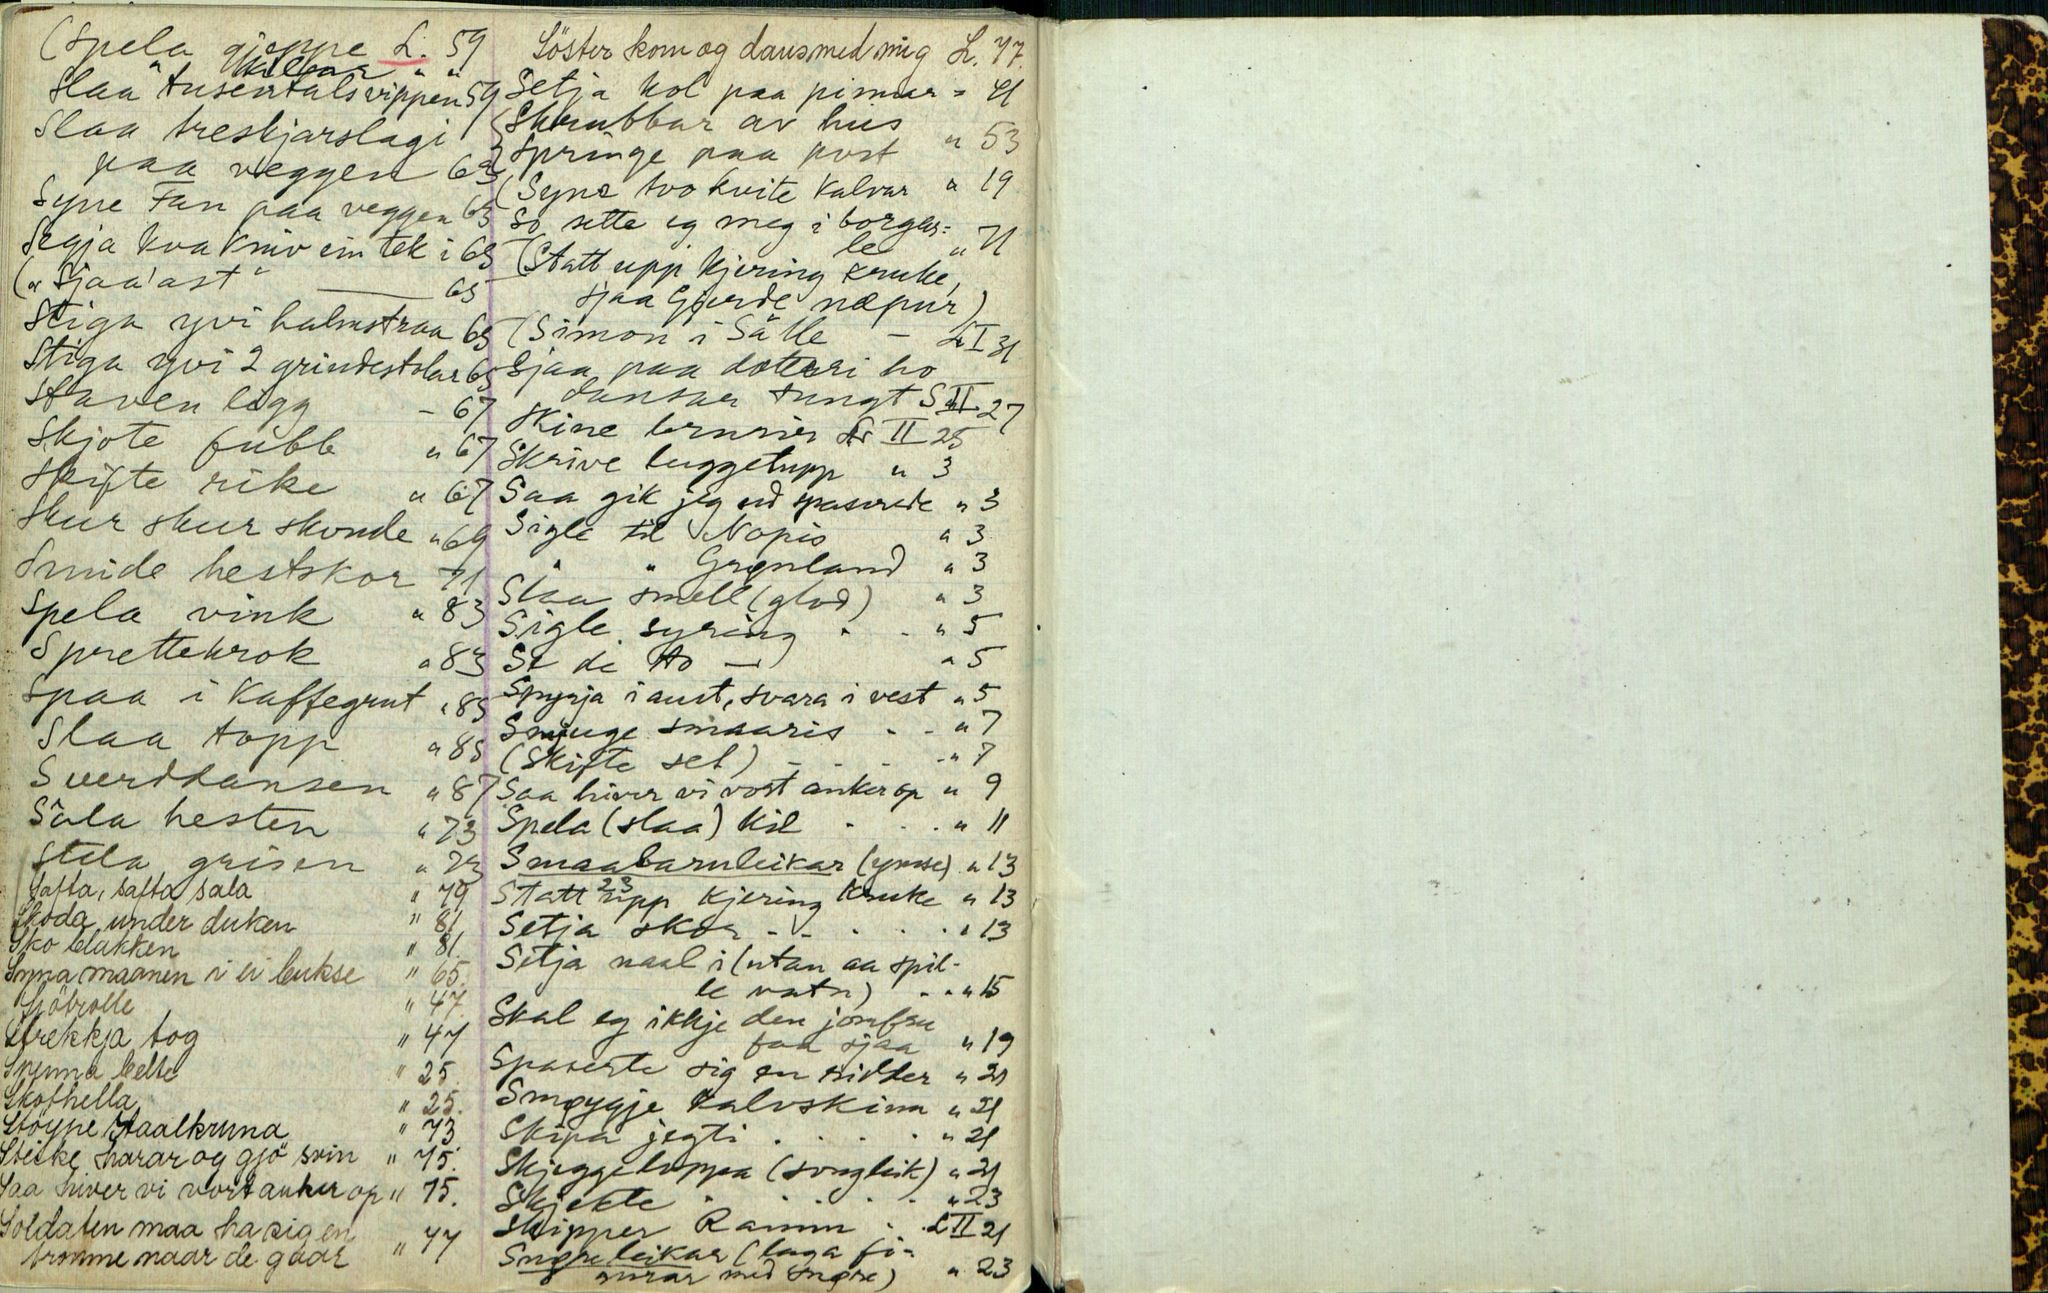 (Spela gjeppe L. 59
" killaar " "
Slaa tusentalsvippen 59
Slaa treskjarslagi
paa veggen 63
Syne Fan paa veggen 63
Segja kva kniv ein tek i 63
(" Sjaa' ast" — 65
Stiga yvi halmstraa 65
Stiga yvi 2 grindestolar 65
Staven ligg – 67
Skjote fubb " 67
Skifte rike " 67
Skur skur skonde " 69
Smide hestskor 71
Spela vink " 83
Sprettekrok " 83
Spaa i Kaffegrut " 85
Slaa topp " 85
Sverddansen " 87
Sâla hesten " 73
Stela grisen " 73
Safta, safta sala " 79
Skoda under duken " 81
Sko blakken " 81.
Syna maanen i ei bukse " 65.
Sjötrolle " 47.
Strekkja tog " 47
Spenna belte " 25.
Skothella " 25.
Stöype staalkruna " 73
Steike harar og gjö svin " 75.
Saa hiver vi vort anker op " 75.
Soldaten maa ha sig en
tromme naar de gaar " 77
Söster kom og dans med mig L. 77.
Setja kol paa pinnar = 41
Skrubbar av hus
Springe paa post " 53
(Syne tvo kvite kalvar " 19
So sette eg meg i borgar=
le " 71
(Statt upp kjering kruke,
sjaa Gjurde næpur)
(Simon i Sâlle – L I 31
Sjaa paa dotteri ho
dansar tungt S II 27
Skine brurier L II 25
Skrive luggetupp " 3
Saa gik jeg ud spaserede " 3
Sigle til Nopis " 3
" " Grønland " 3
Slaa smell (glod) " 3
Sigle syring . . " 5
Se di to — " 5
Spyrja i aust, svara i vest " 5
Smjuge smaaris . . " 7
(Skifte sel) . . . . " 7
Saa hiver vi vort anker op " 9
Spela (slaa) kil . . . " 11
Smaabarnleikar (ymse) " 13
Statt upp kjering kruke " 13
23
Setja skor . . . . . " 13
Setja naal i (utan aa spil-
le vatn) . . " 15
Skal eg ikkje den jomfru
faa sjaa " 19
Spaserte sig en ridder " 21
Smøygje kalvskinn " 21
Skipa jegti . . . . . " 21
Skjeggeloppa (songleik) " 21
Skjekte . . . . . " 23
Skipper Ramm . L II 21
Snøreleikar (laga fi-
gurar med snøre) " 23